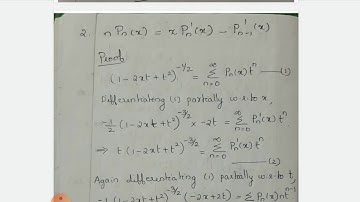 2. n Pn(x) = x Pn'(x) - P'n-1(x)
Proof
(1-2xt+t²)^-1/2 = ∞Σn=0 Pn(x) t^n —(1)
Differentiating (1) partially w.r.to x,
-1/2 (1-2xt+t²)^-3/2 × -2t = ∞Σn=0 Pn'(x) t^n
⇒ t (1-2xt+t²)^-3/2 = ∞Σn=0 Pn'(x) t^n
—(2)
Again differentiating (1) partially w.r.to t,
(1-2xt+t²)^-3/2 (-2x+2t) = Σ Pn(x) n t^n-1